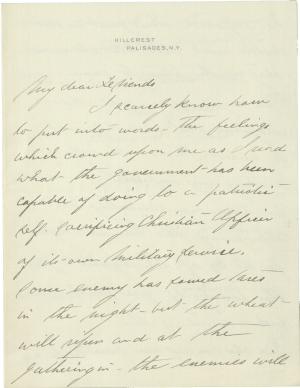 HILLCREST
PALISADES, N.Y.
My dear Friends
I scarcely know how
to put into words the feelings
which crowd upon me as I read
what the government has been
capable of doing to a patriotic
self-sacrificing Christian Officer
of its own Military Service.
Some enemy has sowed tares
in the night - but the wheat
will ripen and at the
gathering in - the enemies will